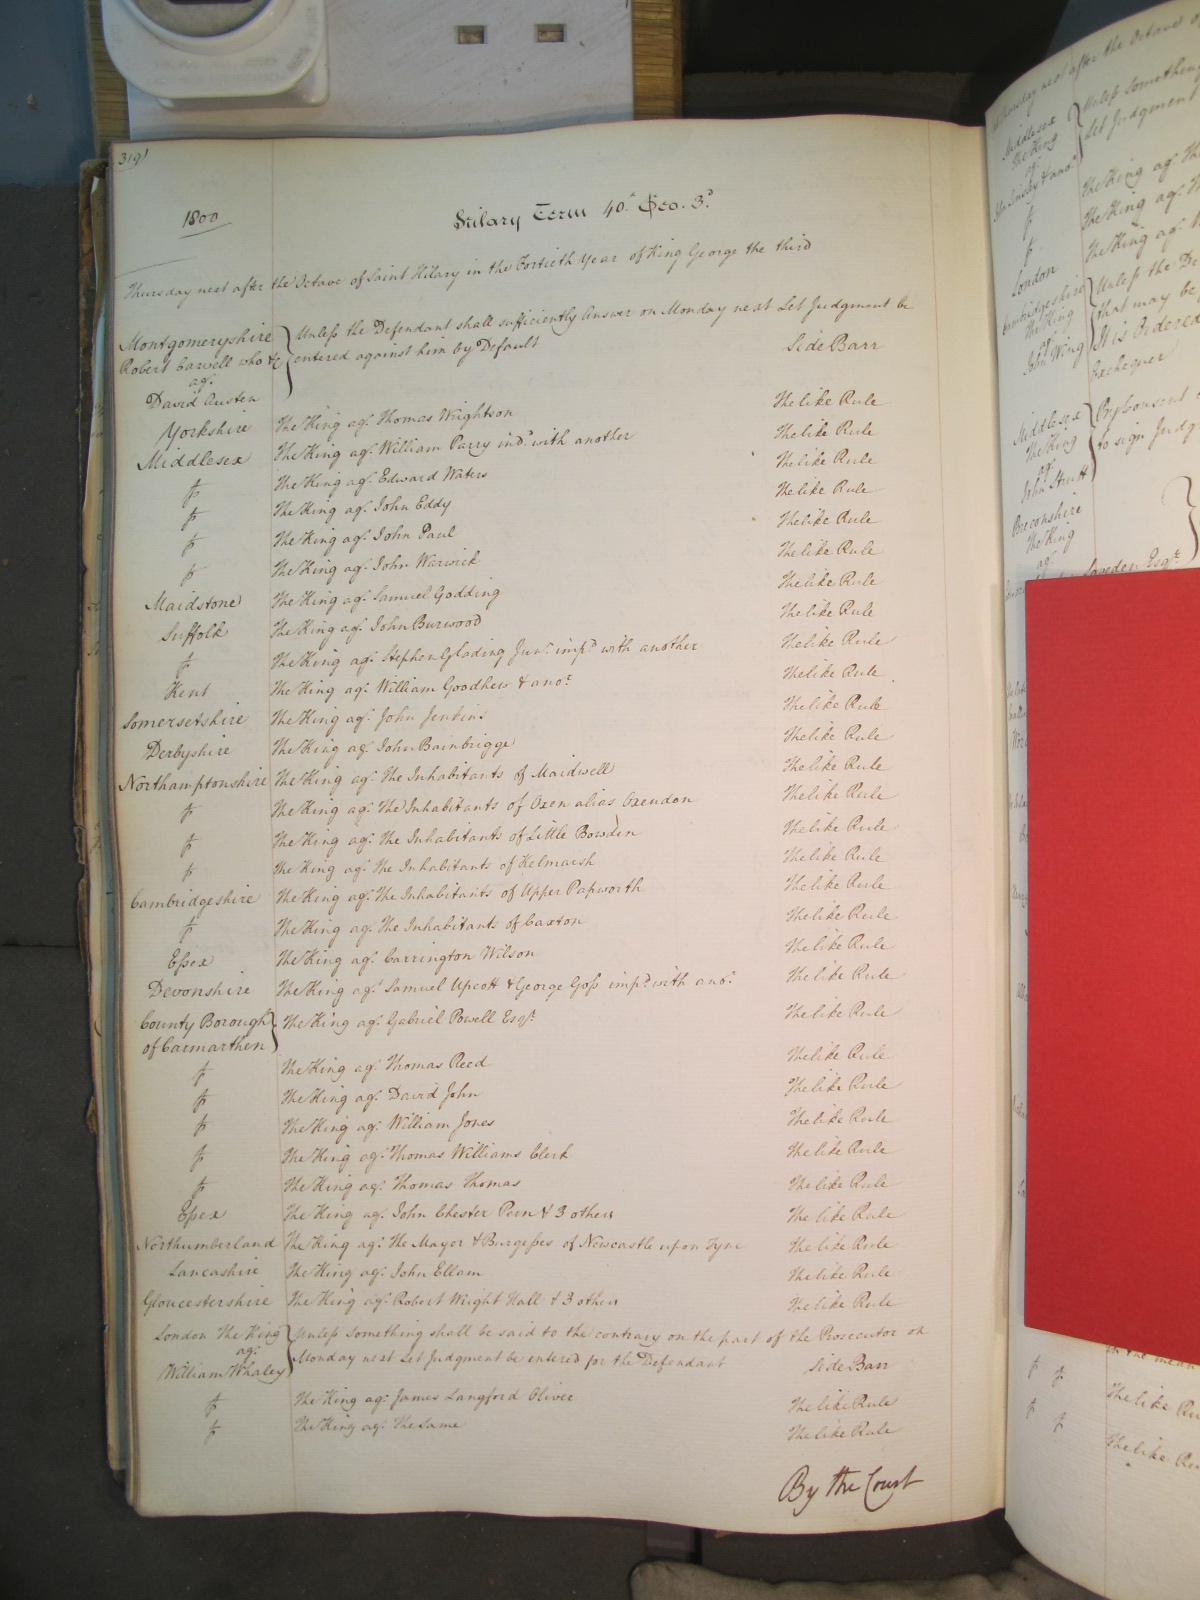 319
1800
Hilary Term 40th Geo. 3d
Thursday next after the Octave of Saint Hilary in the Fortieth Year of King George the third
Montgomeryshire
Robert Carvell who &c
agt
David Austen
Unless the Defendant shall sufficiently Answer on Monday next Let Judgment be
entered against him by Default Side Barr
Yorkshire The King agt Thomas Wrightson The like Rule
Middlesex The King agt William Parry indd with another The like Rule
The King agt Edward Waters The like Rule
The King agt John Eddy The like Rule
The King agt John Paul The like Rule
The King agt John Warwick The like Rule
Maidstone The King agt Samuel Godding The like Rule
Suffolk The King agt John Burwood The like Rule
The King agt Stephen Glading Junr impd with another The like Rule
Kent The King agt William Goodhew & anor The like Rule
Somersetshire The King agt John Jenkins The like Rule
Derbyshire The King agt John Bainbrigge The like Rule
Northamptonshire The King agt The Inhabitants of Maidwell The like Rule
The King agt The Inhabitants of Oxen alias Oxendon The like Rule
The King agt The Inhabitants of Little Bowden The like Rule
The King agt The Inhabitants of Kelmarsh The like Rule
Cambridgeshire The King agt The Inhabitants of Upper Papworth The like Rule
The King agt The Inhabitants of Caxton The like Rule
Essex The King agt Carrington Wilson The like Rule
Devonshire The King agt Samuel Upcott & George Goss impd with anor The like Rule
County Borough
of Carmarthen
The King agt Gabriel Powell Esqr The like Rule
The King agt Thomas Reed The like Rule
The King agt David John The like Rule
The King agt William Jones The like Rule
The King agt Thomas Williams Clerk The like Rule
The King agt Thomas Thomas The like Rule
Essex The King agt John Chester Pern & 3 others The like Rule
Northumberland The King agt The Mayor & Burgesses of Newcastle upon Tyne The like Rule
Lancashire The King agt John Ellam The like Rule
Gloucestershire The King agt Robert Wright Hall & 3 others The like Rule
London The King
agt
William Whaley
Unless something shall be said to the contrary on the part of the Prosecutor on
Monday next Let Judgment be entered for the Defendant Side Barr
The King agt James Langford Oliver The like Rule
The King agt The same The like Rule
By the Court
Thursday next after the Octave
Middlesex
The King
agt
Unless something
Let Judgment
The King agt
The King agt
London The King agt
Cambridgeshire
The King
agt
John Wing
Unless the De
that may be
It is Ordered
Exchequer
Middlesex
The King
agt
John Strutt
By Consent
to sign Judg
Breconshire
The King
agt
Esqr
The like Ru
The like Ru